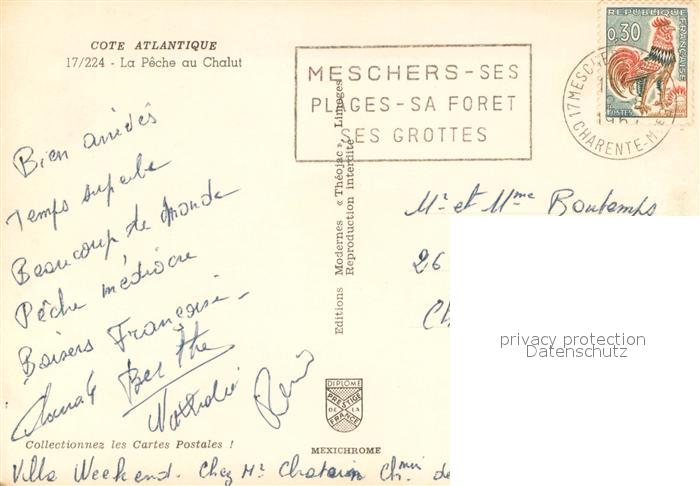 COTE ATLANTIQUE
17/224 - La Pêche au Chalut
MESCHERS-SES
PLAGES-SA FORET
SES GROTTES
REPUBLIQUE FRANÇAISE
0,30
POSTES
17 MESCHE
196
CHARENTE-M
Bien arrivés
Temps superbe
Beaucoup de monde
Pêche médiocre
Baisers Françoise
Berthe
Nathalie
René
Editions Modernes « Théojac », Limoges
Reproduction interdite
Mr et Mme Boutemps
26
Ch
privacy protection
Datenschutz
DIPLOME
PRESTIGE
DE LA
FRANCE
MEXICHROME
Collectionnez les Cartes Postales !
Villa Weekend. Chez Mr Chatain Ch.min de